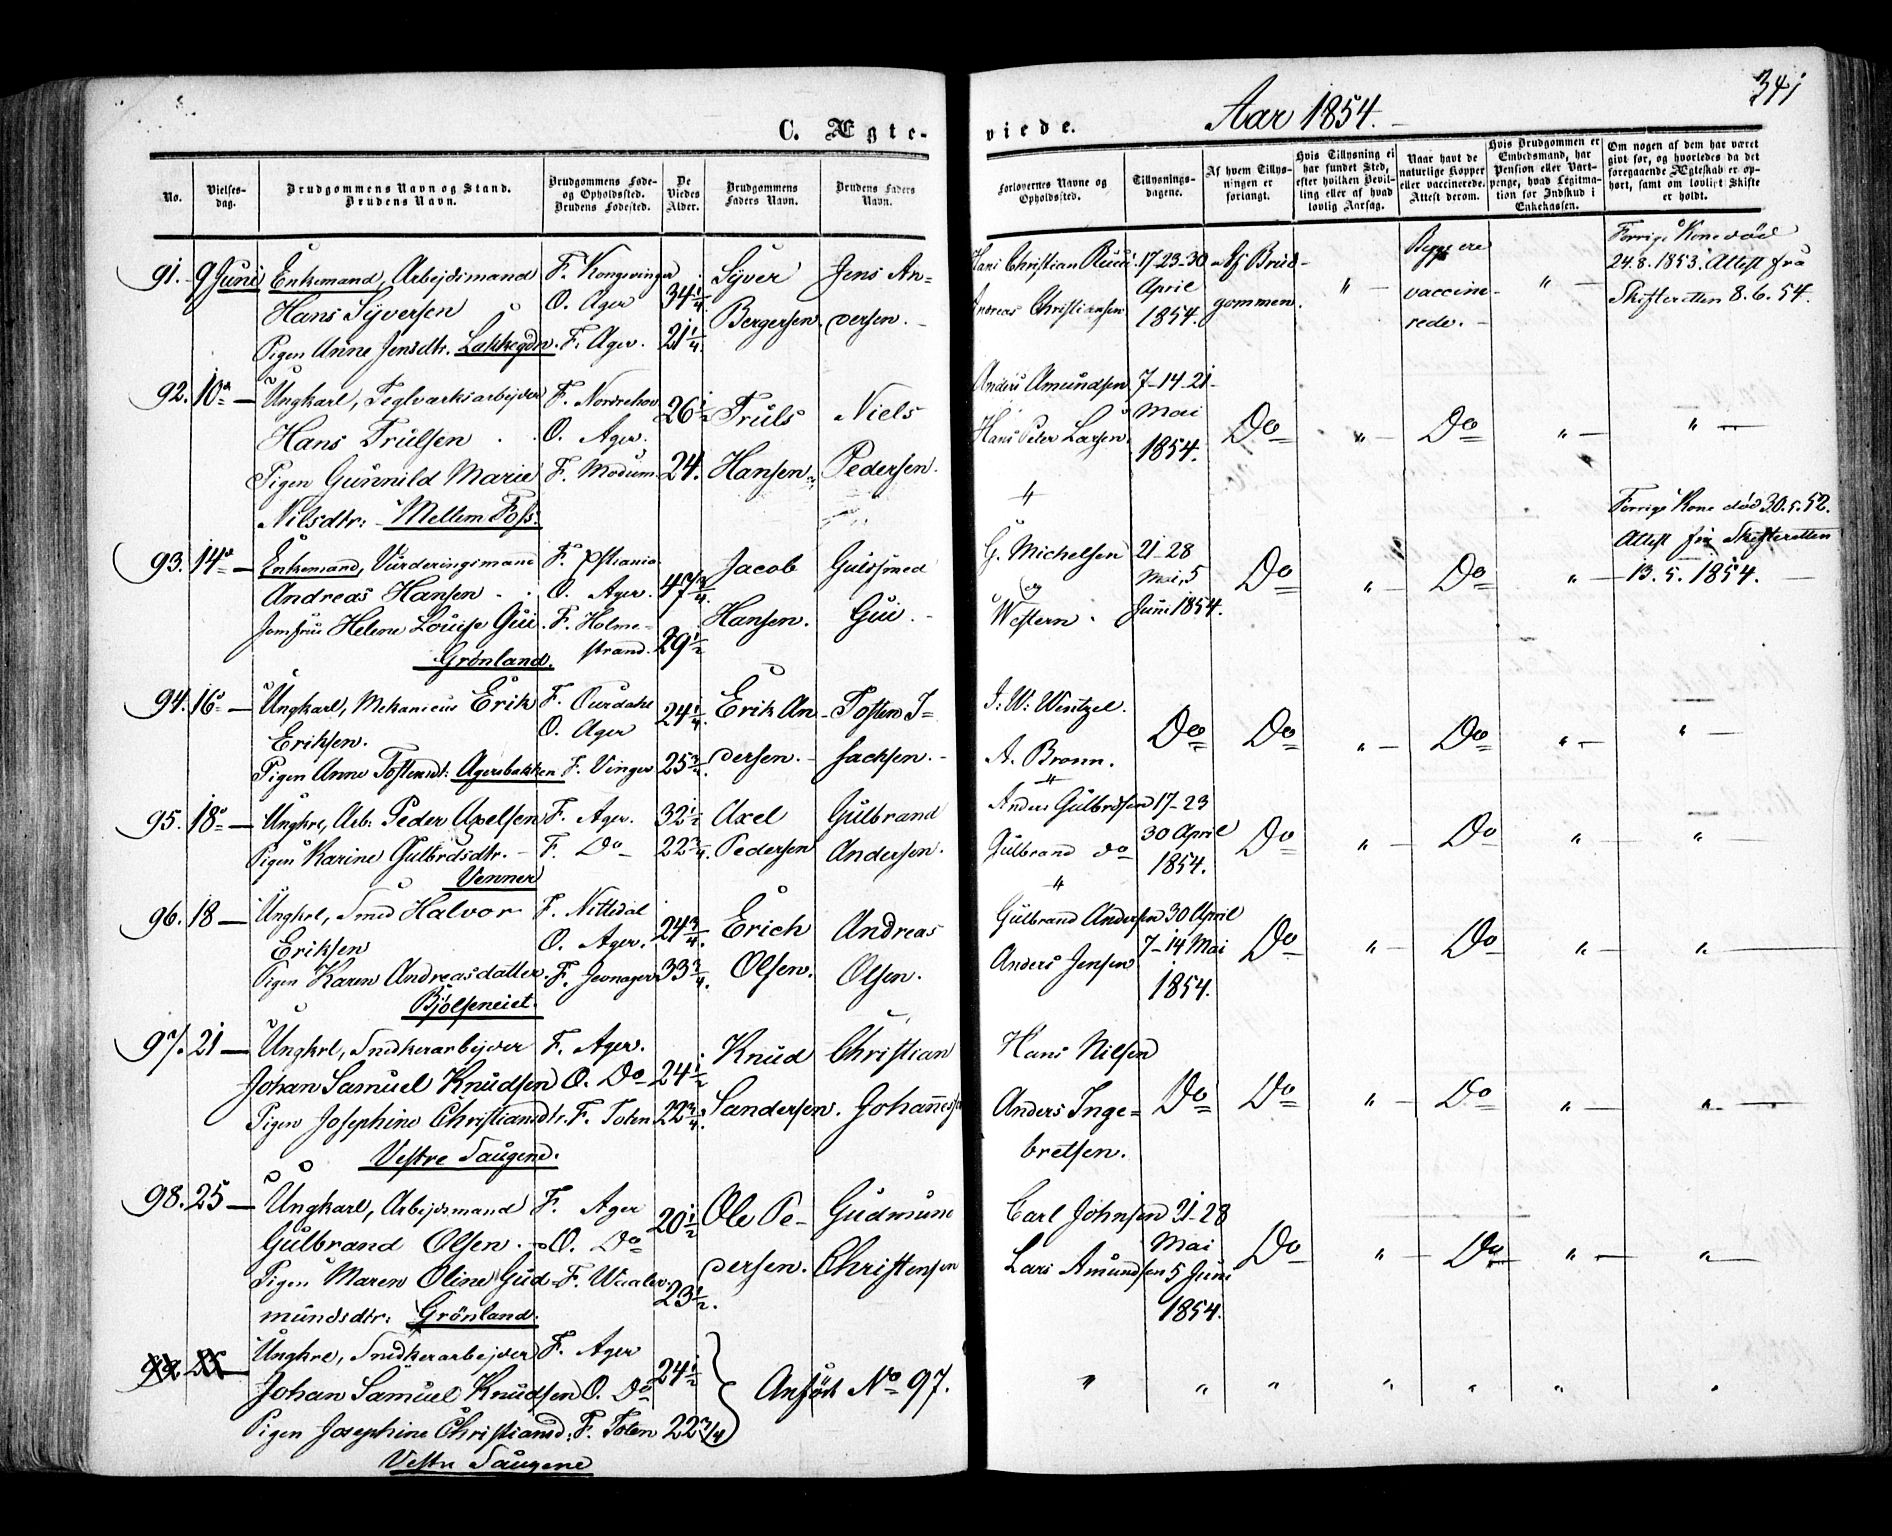 341
C. Ægte-
viede.
Aar 1854.
No.
Vielses-
dag.
Brudgommens Navn og Stand.
Brudens Navn.
Brudgommens Føde-
og Opholdssted.
Brudens Fødested.
De
Viedes
Alder.
Brudgommens
Faders Navn.
Brudens Faders
Navn.
Forlovernes Navne og
Opholdssted.
Tillysnings-
dagene.
Af hvem Tillys-
ningen er
forlangt.
Hvis Tillysning ei
har fundet Sted,
efter hvilken Bevil-
ling eller af hvad
lovlig Aarsag.
Naar havt de
naturlige Kopper
eller vaccinerede.
Attest derom.
Hvis Brudgommen er
Embedsmand, har
Pension eller Vart-
penge, hvad Legitima-
tion for Indskud i
Enkekassen.
Om nogen af dem har været
givt før, og hvorledes da det
foregaaende Ægteskab er op-
hørt, samt om lovligt Skifte
er holdt.
91. 9 Juni Enkemand, Arbejdsmand
Hans Syversen
Pigen Anne Jensdtr. Lakkegdn.
F. Kongsvinger
O. Ager
F. Ager.
34 1/4
21 1/4
Syver
Bergersen.
Jens An-
dersen.
Hans Christian Ruud
Andreas Christiansen
17-23-30
April
1854.
Af Brud-
gommen.
" Begge ere
vaccine-
rede. "
Forrige Kone død
24.8.1853. Attest fra
Skifteretten 8.6.54.
92. 10de Ungkarl, Teglværksarbejder
Hans Trulsen
Pigen Gunnild Marie
Nilsdtr: Mellem Foss.
F. Norderhov
O. Ager.
F. Modum.
26 1/2
24.
Truls
Hansen.
Niels
Pedersen.
Anders Amundsen
Hans Peter Larsen.
7-14-21
Mai
1854.
Do " Do " "
93. 14de Enkemand, Vurderingsmand
Andreas Hansen
Jomfru Helene Louise Gui.
Grønland.
F. Xstiania
O. Ager.
F. Holme-
strand.
47 3/4
29 1/2
Jacob
Hansen.
Guldsmed
Gui.
G. Michelsen
og
Western.
21-28
Mai, 5
Juni 1854.
Do " Do "
Forrige Kone død 30.5.52.
Attest fra Skifteretten
13.5.1854.
94. 16de Ungkarl, Mekanicus Erik
Eriksen.
Pigen Anne Tostensdt: Agersbakken
F. Ourdahl
O. Ager
F. Vinger
24 1/4
25 3/4
Erik An-
dersen.
Tosten I-
sachsen.
J. W. Wentzel.
A. Bronn.
Do Do " Do " "
95. 18de Ungkrl, Arb. Peder Axelsen
Pigen Karine Gulbrdsdtr.
Venner
F. Ager.
F. Do
32 1/2
22 3/4
Axel
Pedersen
Gulbrand
Andersen.
Anders Gulbrdsen
Gulbrand do
17-23
30 April
1854.
Do " Do " "
96. 18 Ungkrl, Smed Halvor
Eriksen
Pigen Karen Andreasdatter.
Bjølseneiet.
F. Nittedal
O. Ager.
F. Jevnager
24 3/4
33 3/4
Erich
Olsen.
Andreas
Olsen.
Gulbrand Andersen
Anders Jensen
30 April
7-14 Mai
1854.
Do " Do " "
97. 21 Ungkrl, Snedkerarbejder
Johan Samuel Knudsen
Pigen Josephine Christiansdtr.
Vestre Saugene.
F. Ager.
O. Do
F. Toten
24 1/2
22 3/4
Knud
Sandersen.
Christian
Johannessen
Hans Nilsen
Anders Inge-
bretsen.
Do Do " Do " "
98. 25 Ungkarl, Arbejdsmand
Gulbrand Olsen.
Pigen Maren Oline Gud-
mundsdtr: Grönland.
F. Ager
O. Do
F. Waaler
20 1/2
23 1/2.
Ole Pe-
dersen.
Gudmund
Christensen
Carl Johnsen
Lars Amundsen
21-28
Mai
5 Juni
1854.
Do " Do " "
99. 25 Ungkrl, Snedkerarbejder
Johan Samuel Knudsen
Pigen Josephine Christiansd:
Vestre Saugene
F. Ager
O. Do
F. Toten
24 1/2
22 3/4
Anført No 97.
" " " " " " "